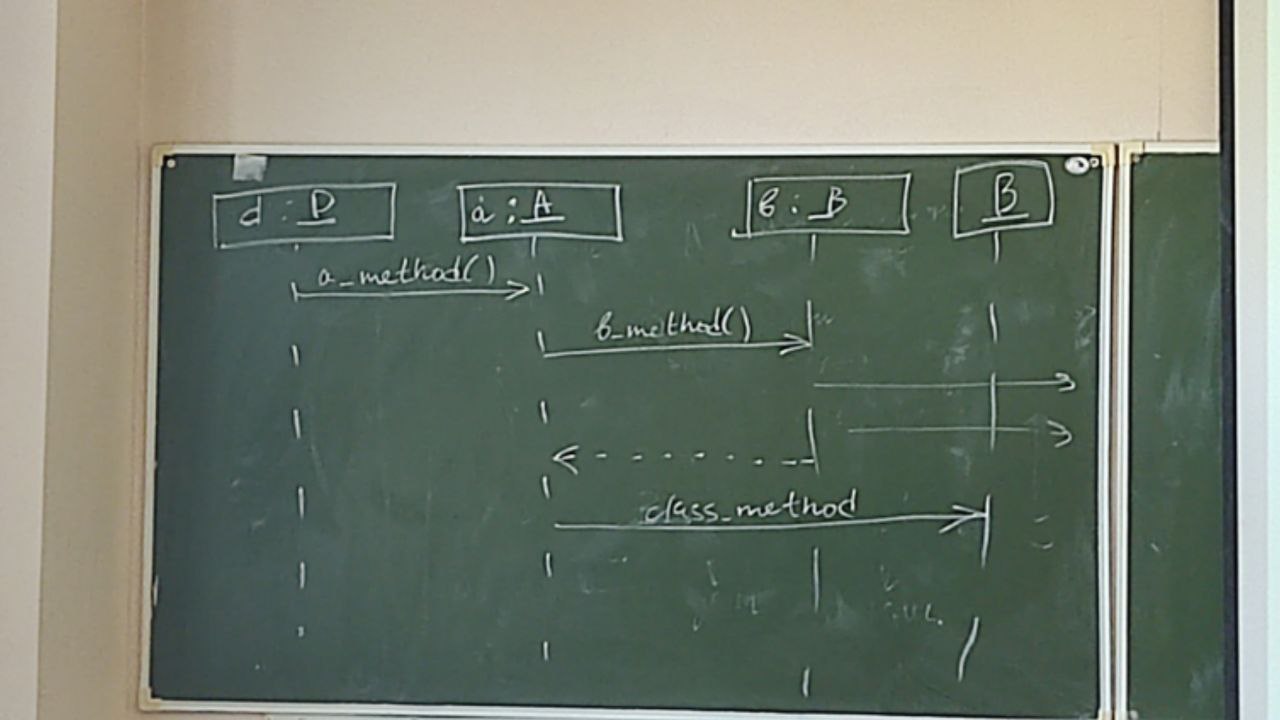 d : D
a : A
b : B
B
a_method()
b_method()
class_method